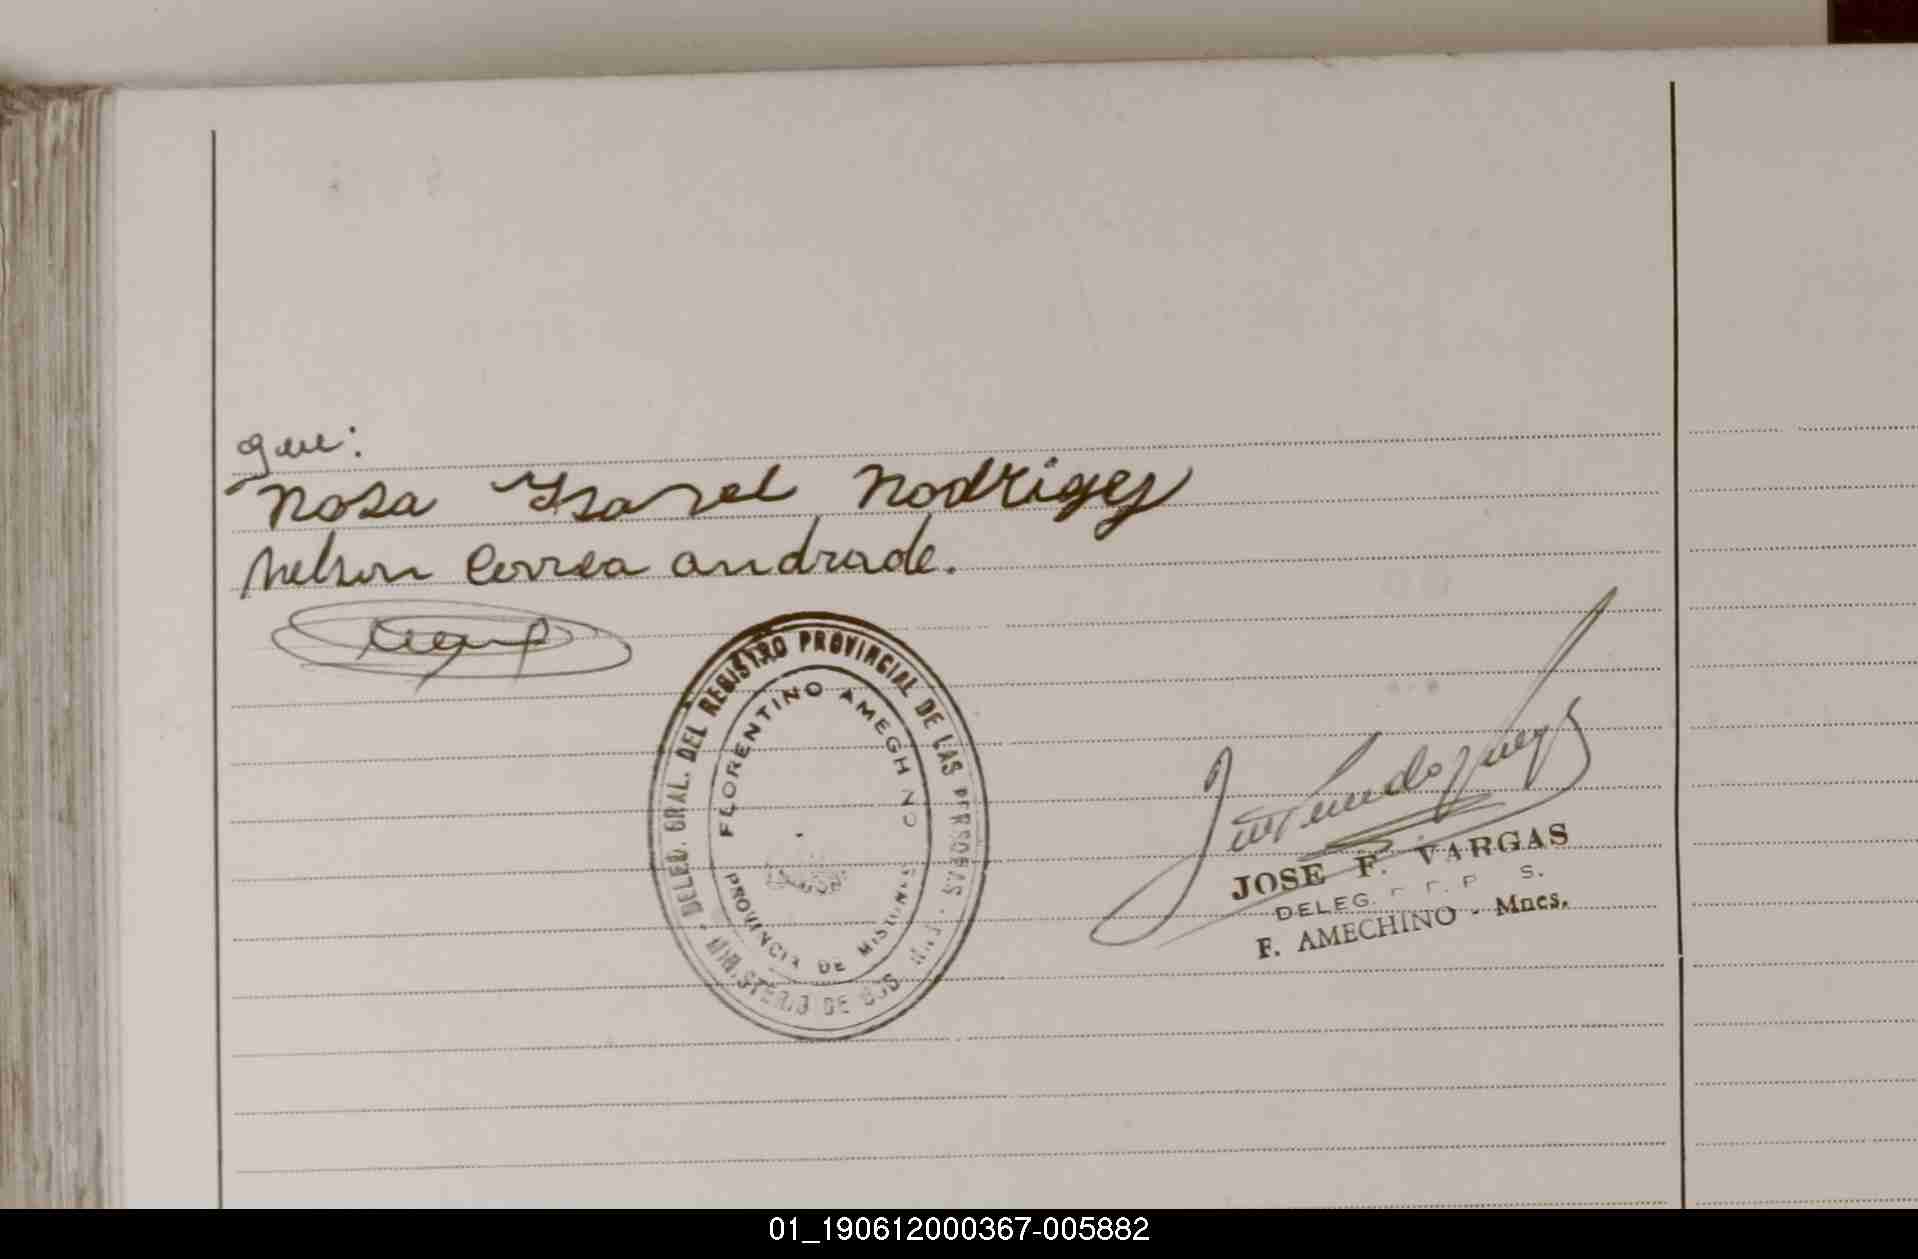 que:
Rosa Ysavel Rodrigez
Nelson Correa andrade.
DELEG. GRAL. DEL REGISTRO PROVINCIAL DE LAS PERSONAS
MINISTERIO DE
FLORENTINO AMEGHINO
PROVINCIA DE MISIONES
JOSE F. VARGAS
DELEG.
F. AMECHINO - Mnes.
01_190612000367-005882